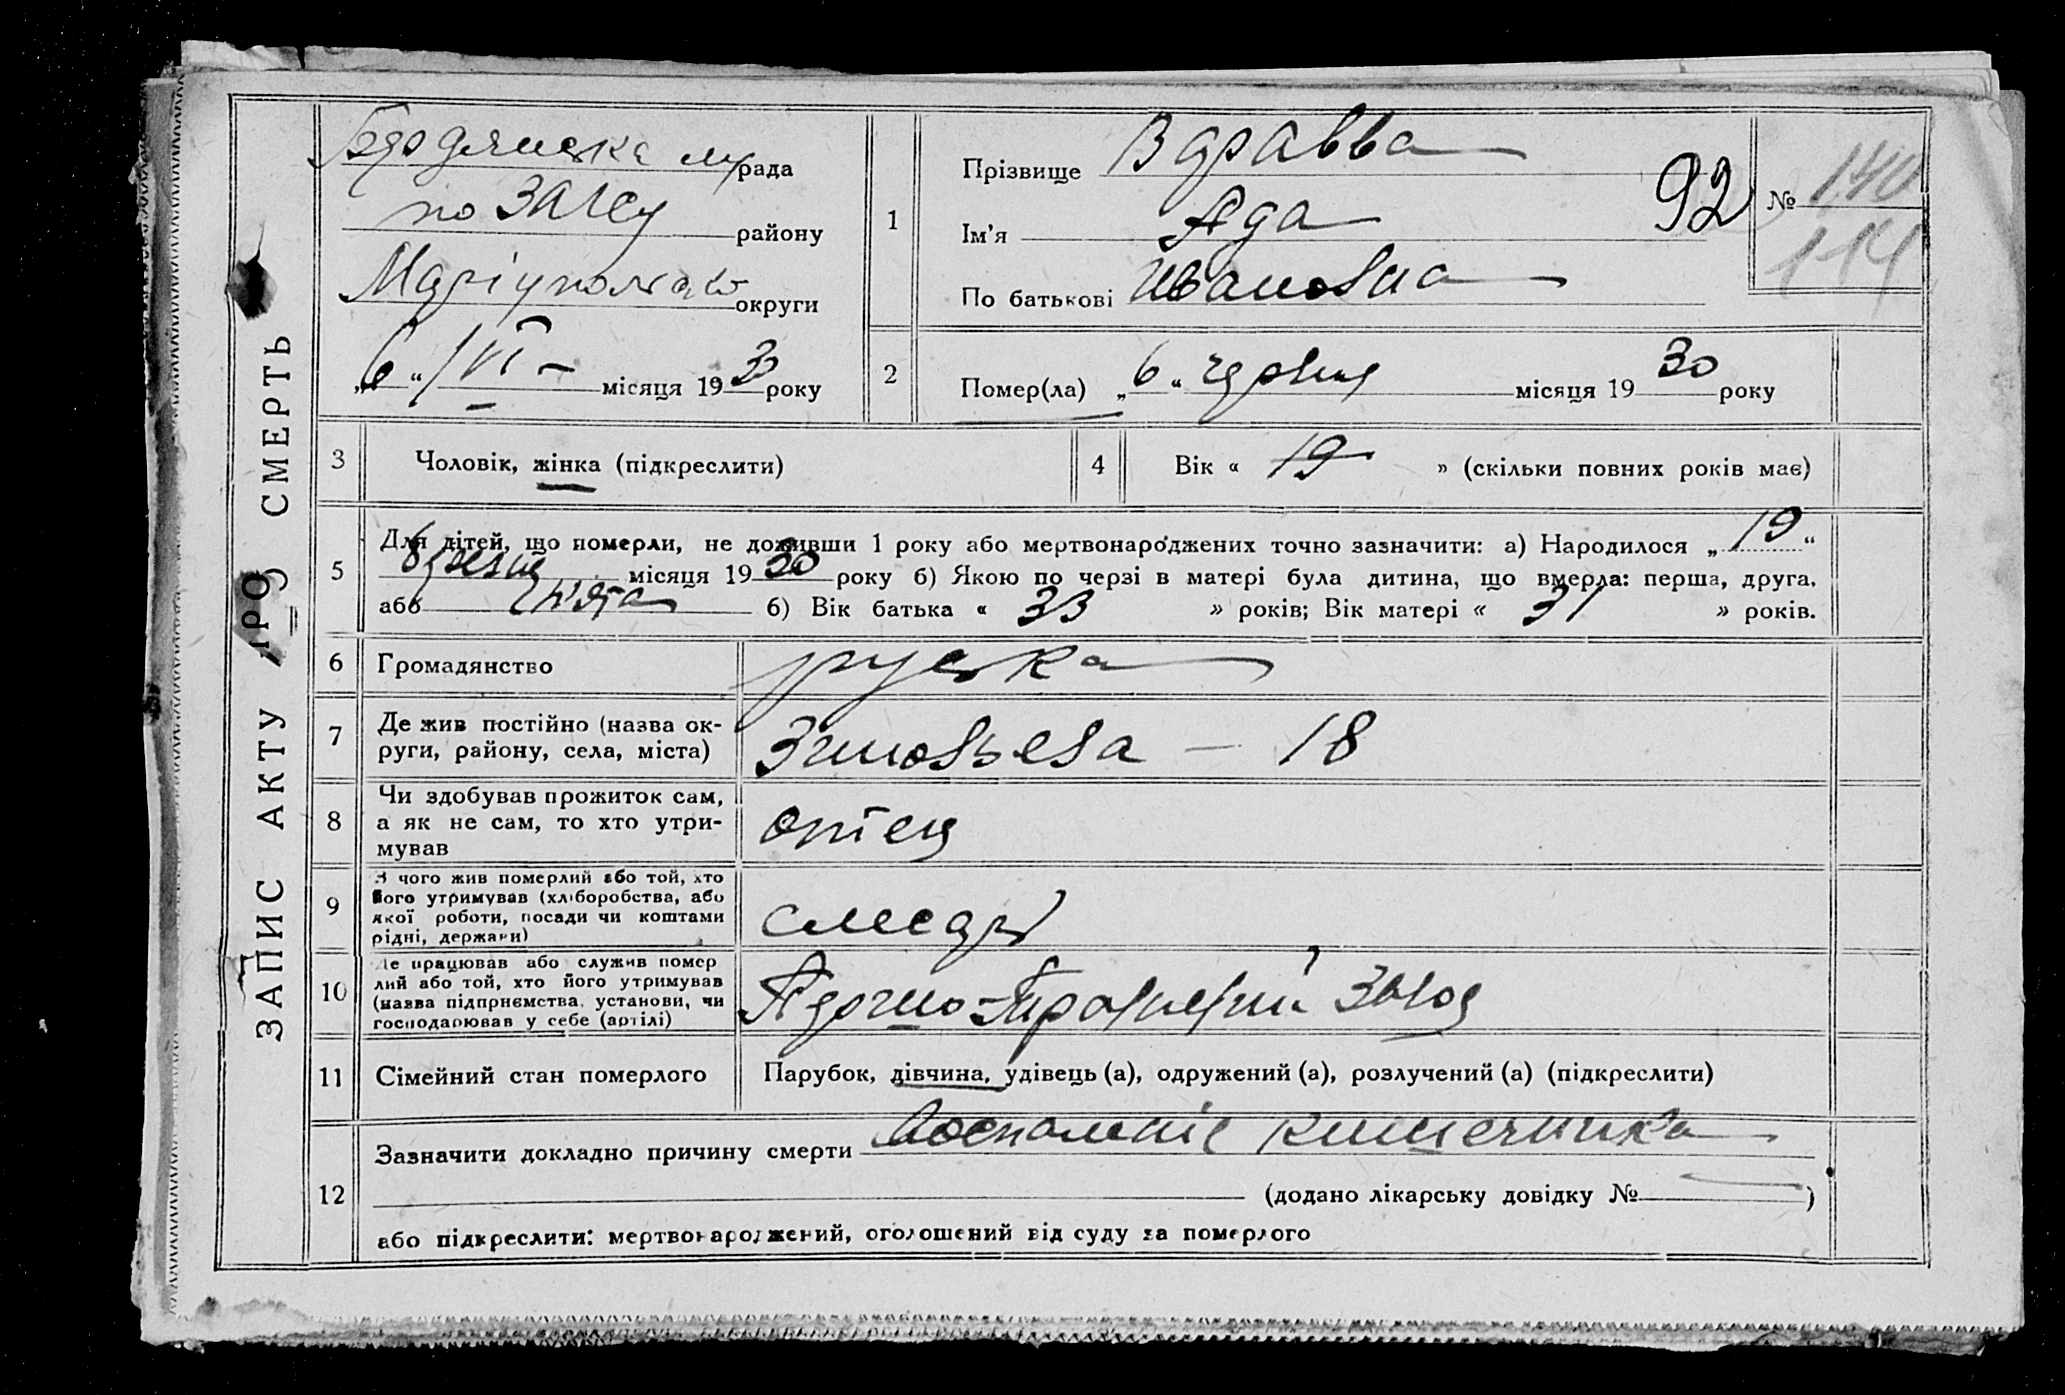 ЗАПИС АКТУ ПРО СМЕРТЬ
Бердянська рада
по ЗАГСу району
Маріупольсько округи
„6“ VI місяця 1930 року
1
Прізвище
Ім'я Ада
По батькові Ивановна
92
№ 140
114
2
Помер(ла) „6“ червня місяця 1930 року
3 Чоловік, жінка (підкреслити)
4 Вік « 19 » (скільки повних років має)
5 Для дітей, що померли, не доживши 1 року або мертвонароджених точно зазначити: а) Народилося „19“
березня місяця 1930 року б) Якою по черзі в матері була дитина, що вмерла: перша, друга,
або п'ята б) Вік батька « 33 » років; Вік матері « 31 » років.
6 Громадянство руська
7 Де жив постійно (назва ок-
руги, району, села, міста) Зиновьева — 18
8 Чи здобував прожиток сам,
а як не сам, то хто утри-
мував
отец
9 З чого жив померлий або той, хто
його утримував (хліборобства, або
якої роботи, посади чи коштами
рідні, держави)
слесарь
10 Де працював або служив помер
лий або той, хто його утримував
(назва підприємства, установи, чи
господарював у себе (артілі)
завод
11 Сімейний стан померлого Парубок, дівчина, удівець (а), одружений (а), розлучений (а) (підкреслити)
12 Зазначити докладно причину смерти Воспаление кишечника
(додано лікарську довідку № )
або підкреслити: мертвонароджений, оголошений від суду за померлого